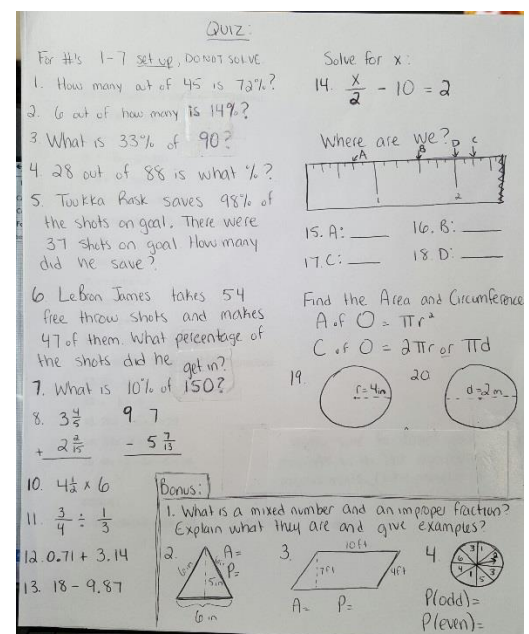 QUIZ:
For #'s 1-7 set up, DO NOT SOLVE.
1. How many out of 45 is 72%?
2. 6 out of how many is 14%?
3. What is 33% of 90?
4. 28 out of 88 is what %?
5. Tuukka Rask saves 98% of
the shots on goal. There were
37 shots on goal How many
did he save?
6 LeBron James takes 54
free throw shots and makes
47 of them. What percentage of
the shots did he get in?
7. What is 10% of 150?
8. 3 4/5
+ 2 2/15
9. 7
- 5 7/13
10. 4 1/2 x 6
11. 3/4 ÷ 1/3
12. 0.71 + 3.14
13. 18 - 9.87
Solve for x:
14. x/2 - 10 = 2
Where are we?
A B D C
1 2
15. A: ____ 16. B: ____
17. C: ____ 18. D: ____
Find the Area and Circumference
A of O = πr²
C of O = 2πr or πd
19. r=4in
20 d=2m
Bonus:
1. What is a mixed number and an improper fraction?
Explain what they are and give examples?
2. A=
P=
6in
5in
6in
3. 10ft
7ft
4ft
A= P=
4.
P(odd)=
P(even)=